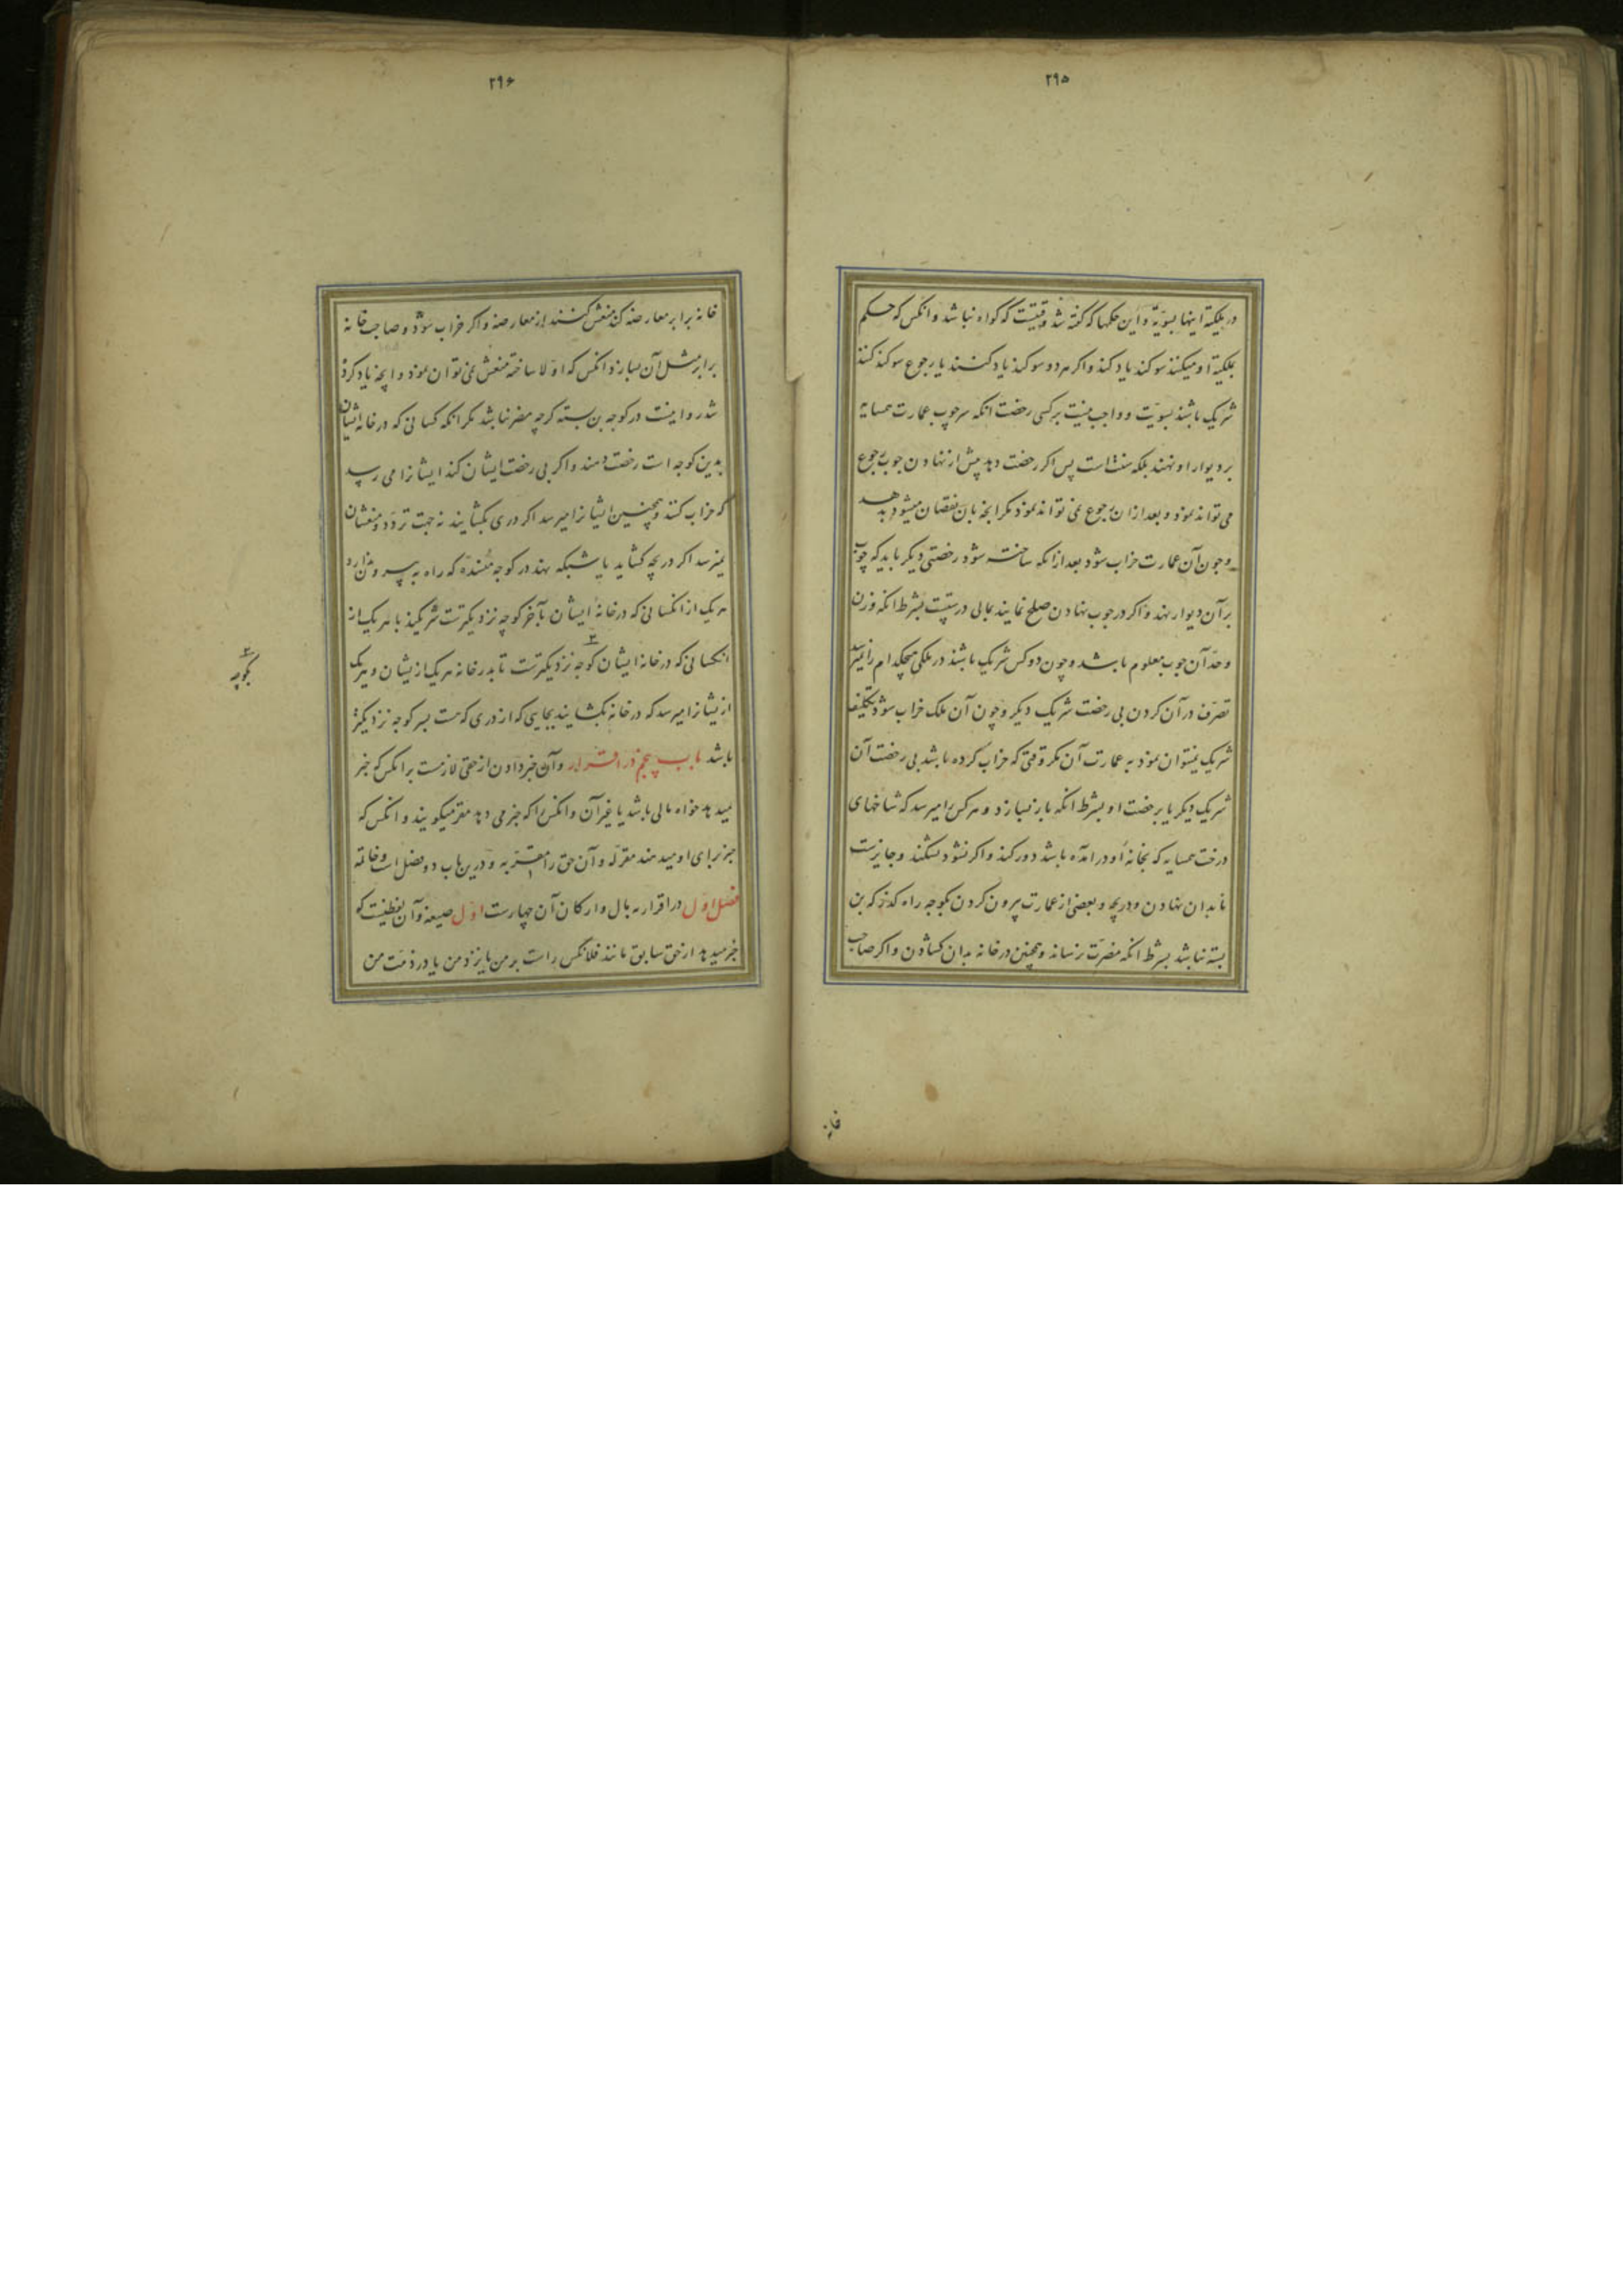 ۲۹۵
در ملکیّة اینها بسویّة و این حکمها که گفته شد وقتیست که گواه نباشد و انکس که حکم
بملکیّة او میکنند سوکند یاد کند و اکر هر دو سوکند یاد کنند یا رجوع سوکند کنند
شریک باشند بسویّت و واجب نیست بر کسی رخصت انکه سر چوب عمارت همسایه
بر دیوار او نهند بلکه سنّت است پس اکر رخصت دهد پیش از نهادن چوب رجوع
می تواند نمود و بعد از ان رجوع نمی تواند نمود مکر انچه بان نقصان میشود بدهد
و چون آن عمارت خراب شود بعد از انکه ساخته شود رخصتی دیکر باید که چوب
بر آن دیوار نهد و اکر در چوب نهادن صلح نمایند بمالی درستست بشرط انکه وزن
و حدّ آن چوب معلوم باشد و چون دو کس شریک باشند در ملکی هیچکدام را نمیرسد
تصرّف در آن کردن بی رخصت شریک دیکر و چون آن ملک خراب شود تکلیف
شریک نمیتوان نمود به عمارت آن مکر وقتی که خراب کرده باشد بی رخصت آن
شریک دیکر یا برخصت او بشرط انکه باز بسازد و هر کس را میرسد که شاخهای
درخت همسایه که بخانهٔ او درامده باشد دور کند و اکر نشود بشکند و جایزست
نابدان نهادن و دریچه و بعضی از عمارت بیرون کردن بکوچه راه کذر که بن
بسته نباشد بشرط انکه مضرّت نرساند و همچنین در خانه بدان کشادن و اکر صاحب
خانه
۲۹۶
خانه برابر معارضه کند منعش کنند از معارضه و اکر خراب شود و صاحب خانه
برابر مثل آن بسازد انکس که اوّلا ساخته منعش نمی توان نمود و انچه یاد کرده
شد روا نیست در کوچه بن بسته کرچه مضر نباشد مکر انکه کسانی که در خانه ایشان
بدین کوچه است رخصت دهند و اکر بی رخصت ایشان کند ایشانرا می رسد
که خراب کنند و همچنین ایشانرا میرسد اکر دری بکشایند نه جهت تردّد و منعشان
نمیرسد اکر دریچه کشاید یا شبکه نهد در کوچه که راه به بیرون ندارد
هر یک از انکسانی که در خانهٔ ایشان بآخر کوچه نزدیکترست شریکند با هر یک از
انکسانی که در خانه ایشان کوچه نزدیکترست تا بدر خانه هر یک ازیشان و هریک
ازیشانرا میرسد که در خانه بکشایند بجایی که از دری که هست بسر کوچه نزدیکتر
باشد باب پنجم در اقرار و آن خبر دادن از حقی لازمست بر انکس که خبر
میدهد خواه مالی باشد یا غیر آن و انکس را که خبر می دهد مقر میکویند و انکس که
خبر برای او میدهند مقرّ له و آن حق را مقرّ به و درین باب دو فصل است و خاتمه
فصل اوّل در اقرار به مال و ارکان آن چهارست اوّل صیغه و آن لفظیست که
خبر میدهد از حق سابق مانند فلانکس راست بر من یا نزد من یا در ذمّت من
بکوچه